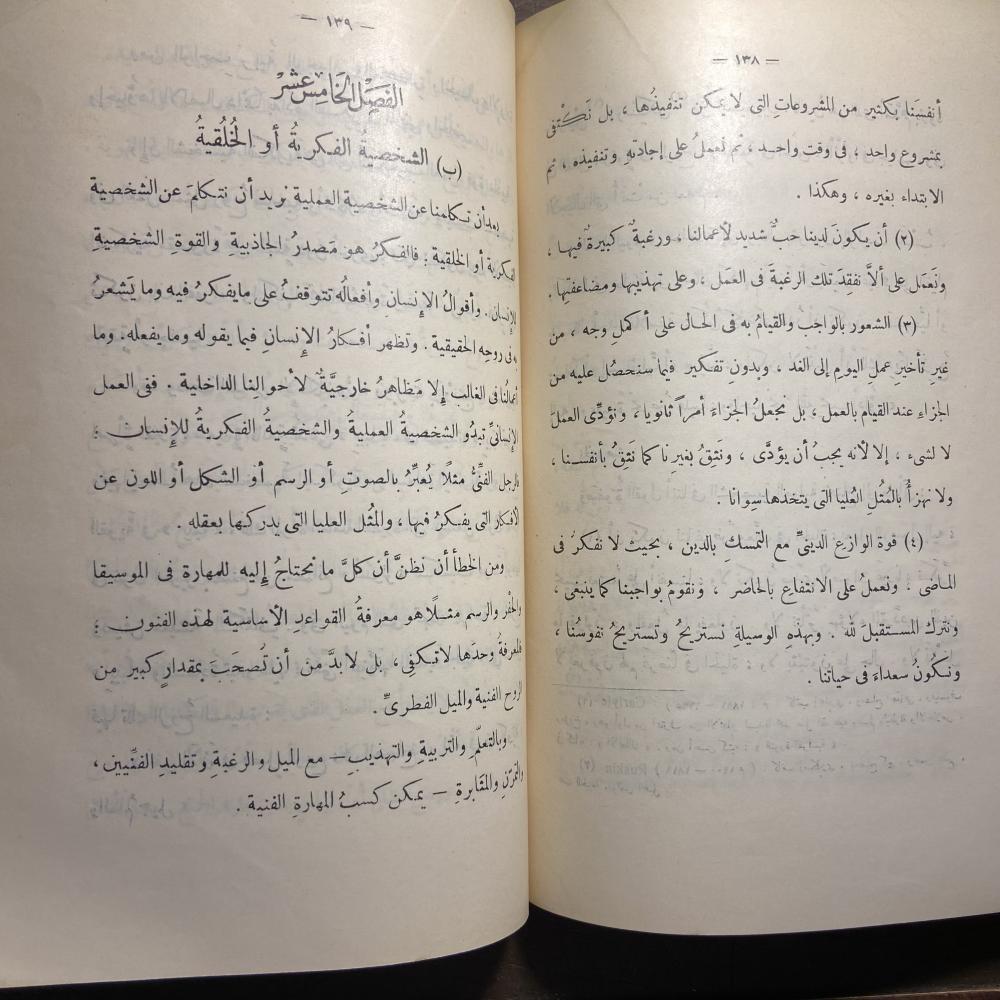 — ١٣٨ —
أنفسَنا بكثير من المشروعاتِ التى لا يمكن تنفيذُها ، بل نَكْتفى
بمشروع واحد ، فى وقت واحد ، ثم نَعملُ على إجادتهِ وتنفيذه ، ثم
الابتداء بغيره ، وهكذا .
(٢) أن يكونَ لدينا حبٌّ شديد لأعمالنا ، ورغبةٌ كبيرةٌ فيها ،
ونَعمَل على ألاَّ نَفقِدَ تلك الرغبةَ فى العمَل ، وعلى تهذيبها ومضاعفتِها .
(٣) الشعور بالواجبُ والقيامُ به فى الحال على أكملِ وجه ، من
غيرِ تأخيرِ عملِ اليومِ إلى الغد ، وبدونِ تفكير فيما سنحصُل عليه من
الجزاءِ عند القيامِ بالعمل ، بل نجعلُ الجزاءَ أمراً ثانوياً ، ونؤدِّى العملَ
لا لشىء ، إلا لأنه يجبُ أن يؤدَّى ، ونَثِقُ بغيرِنا كما نَثِقُ بأنفسنا ،
ولا نهزأُ بالمُثُلِ العُليا التى يتخذها سِوانا .
(٤) قوة الوازعِ الدينىِّ مع التمسكِ بالدين ، بحيث لا نفكرُ فى
الماضى . ونعملُ على الانتفاعِ بالحاضرِ ، ونقومُ بواجبِنا كما ينبغى ،
ونترك المستقبلَ لله . وبهذهِ الوسيلةِ نستريحُ وتستريحُ نفوسُنا ،
ونكونُ سعداءَ فى حياتنا .
— ١٣٩ —
الفصل الخامس عشر
(ب) الشخصيةُ الفكريةُ أو الخُلُقيةُ
بعد أن تكلمنا عن الشخصية العملية نريد أن نتكلمَ عن الشخصية
الفكرية أو الخلقية ؛ فالفكرُ هو مَصدرُ الجاذبيةِ والقوةِ الشخصيةِ
للإنسانِ . وأقوالُ الإنسانِ وأفعالُه تتوقفُ على ما يفكرُ فيه وما يَشعرُ
به فى روحِهِ الحقيقية . وتظهر أفكارُ الإنسانِ فيما يقوله وما يفعله . وما
أعمالُنا فى الغالب إلا مَظاهرُ خارجيَّةٌ لأحوالِنا الداخلية . ففى العمل
الإنسانىِّ تبدُو الشخصيةُ العمليةُ والشخصيةُ الفكريةُ للإنسان ؛
فالرجل الفنِّىُّ مثلاً يُعبِّرُ بالصوتِ أو الرسم أو الشكل أو اللون عن
الأفكار التى يفكرُ فيها ، والمُثل العليا التى يدركها بعقله .
ومن الخطأ أن نظنَّ أن كلَّ ما نحتاجُ إليه للمهارة فى الموسيقا
والحفْر والرسم مثلاً هو معرفةُ القواعدِ الأساسية لهذه الفنون ؛
فالمعرفةُ وحدَها لا تكفِى ، بل لا بدَّ من أن تُصحَبَ بمقدارٍ كبير من
الروح الفنية والميل الفطرىِّ .
وبالتعلُّمِ والتربيةِ والتهذيبِ — مع الميل والرغبةِ وتقليدِ الفنِّيين ،
والتمرُّنِ والمثابرةِ — يمكن كسبُ المهارةِ الفنية .